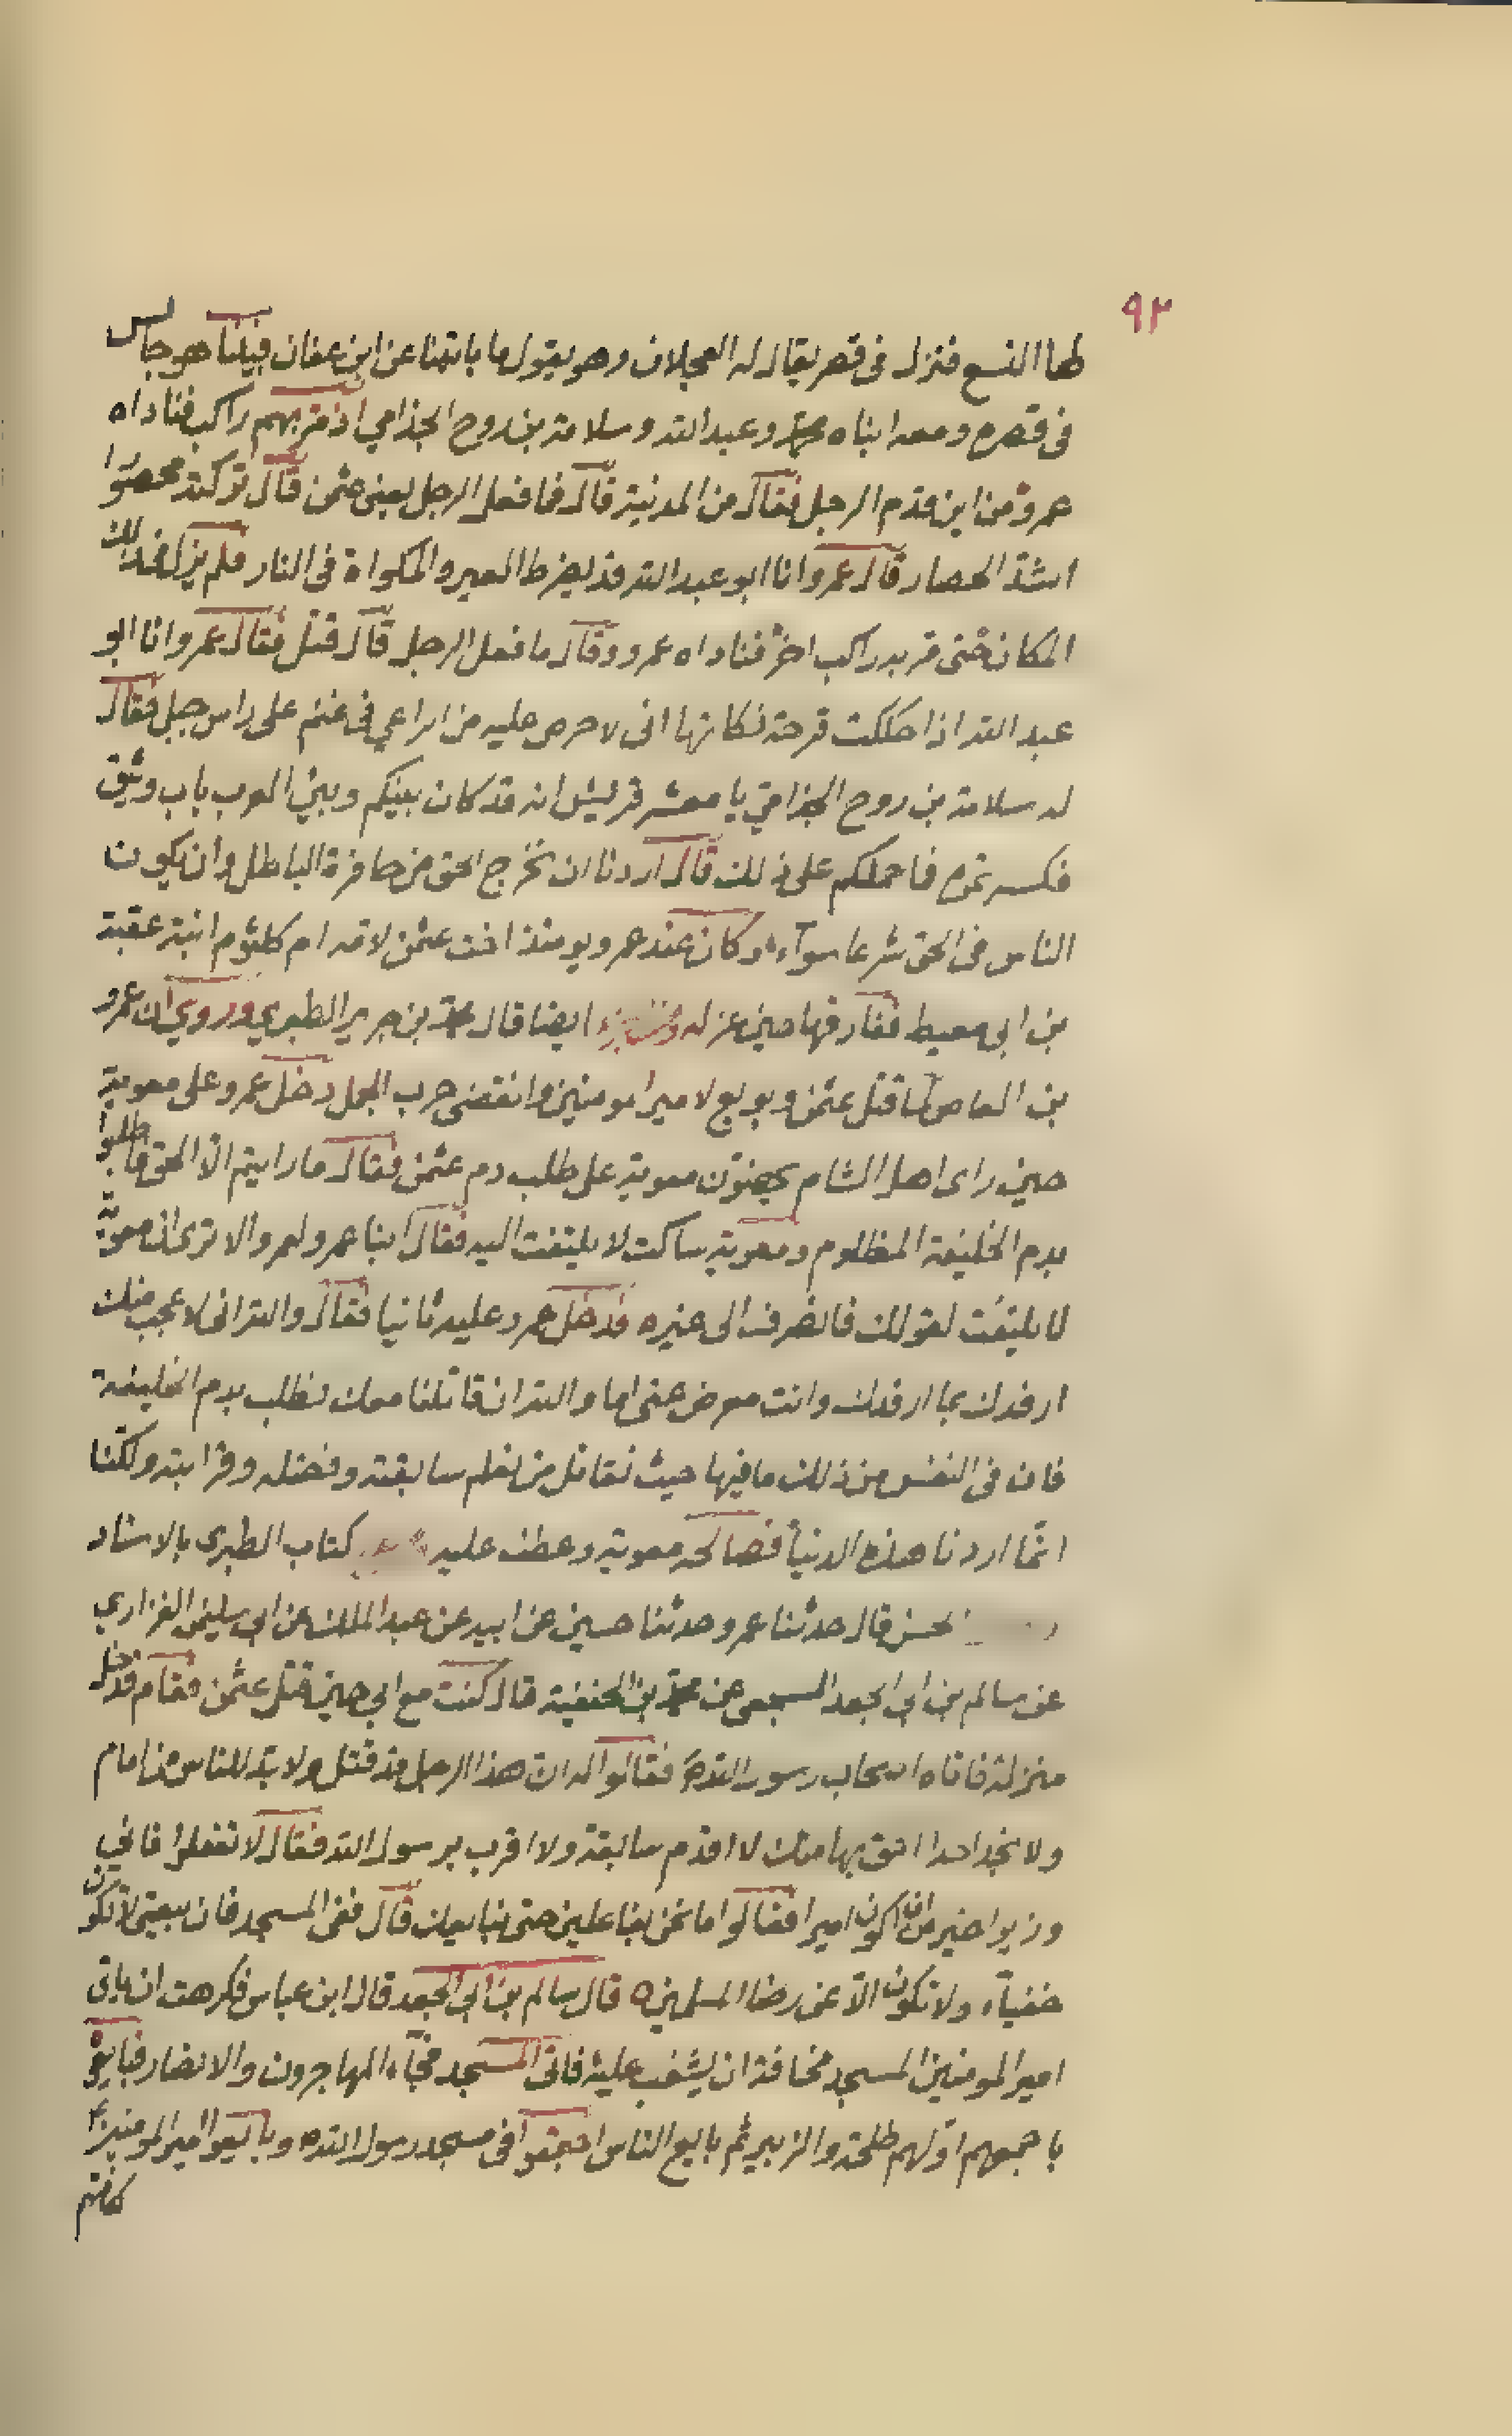 ٩٢
لها السبع فنزل فى قصر يقال له العجلان وهو يقول ما ياتينا عن ابن عفان فبينا هو جالس
فى قصره ومعه ابناه محمد وعبد الله وسلامة بن روح الجذامي اذ مر بهم راكب فناداه
عمرو من اين قدم الرجل فقال من المدنية قال فما فعل الرجل يعنى عثمن قال تركته محصورا
اشد الحصار قال عمرو انا ابو عبد الله قد يضرط العير والمكواة فى النار فلم يزل فى ذلك
المكان حتى مر به راكب اخر فناداه عمرو وقال ما فعل الرجل قال قتل فقال عمرو انا ابو
عبد الله اذا حككت قرحة نكاتها انى لاحرص عليه من الراعي فى غنم على راس جبل فقال
له سلامة بن روح الجذامي يا معشر قريش انه قد كان بينكم وبين العرب باب وثيق
فكسرتموه فما حملكم على ذلك قال اردنا ان نخرج الحق من حافرة الباطل وان يكون
الناس فى الحق شرعا سوآء وكان عند عمرو يومئذ اخت عثمن لامه ام كلثوم ابنة عقبة
بن ابى معيط ففارقها حين عزله ايضا قال محمد بن جرير الطبري وروي ان عمرو
بن العاص لما قتل عثمن وبويع لامير المومنين وانقضى حرب الجمل دخل عمرو على معوية
حين راى اهل الشام يحضون معوية على طلب دم عثمن فقال ما رايتم الا الحق فاطلبوا
بدم الخليفة المظلوم ومعوية ساكت لا يلتفت اليه فقال ابنا عمرو لعمرو الا ترى ان معوية
لا يلتفت لقولك فانصرف الى غيره فدخل عمرو عليه ثانيا فقال والله انى لاعجب منك
ارفدك بما ارفدك وانت معرض عنى اما والله ان قاتلنا معك نطلب بدم الخليفة
فان فى النفس من ذلك ما فيها حيث نقاتل من نعلم سابقته وفضله وقرابته ولكنا
انما اردنا هذه الدنيا فصالحه معوية وعطف عليه كتاب الطبرى بالاسناد
قال حدثنا عمرو حدثنا حسين عن ابيه عن عبد الملك عن ابي سليمن الفزاري
عن سالم بن ابي الجعد الاشجعى عن محمد بن الحنفية قال كنت مع ابي حين قتل عثمن فقام فدخل
منزله فاتاه اصحاب رسول الله فقالوا له ان هذا الرجل قد قتل ولا بد للناس من امام
ولا نجد احدا احق بها منك لا اقدم سابقة ولا اقرب برسول الله فقال لا تفعلوا فانى
وزيرا خير من ان اكون اميرا فقالوا ما نحن بفاعلين حتى نبايعك قال ففى المسجد فان بيعتى لا تكون
خفيآء ولا تكون الا عن رضا المسلمين قال سالم بن ابي الجعد قال ابن عباس فكرهت ان ياتى
امير المومنين المسجد مخافة ان يشغب عليه فاتى المسجد فجآء المهاجرون والانصار فبايعوه
باجمعهم اولهم طلحة والزبير ثم بايع الناس اجمعوا فى مسجد رسول الله وبايعوا امير المومنين